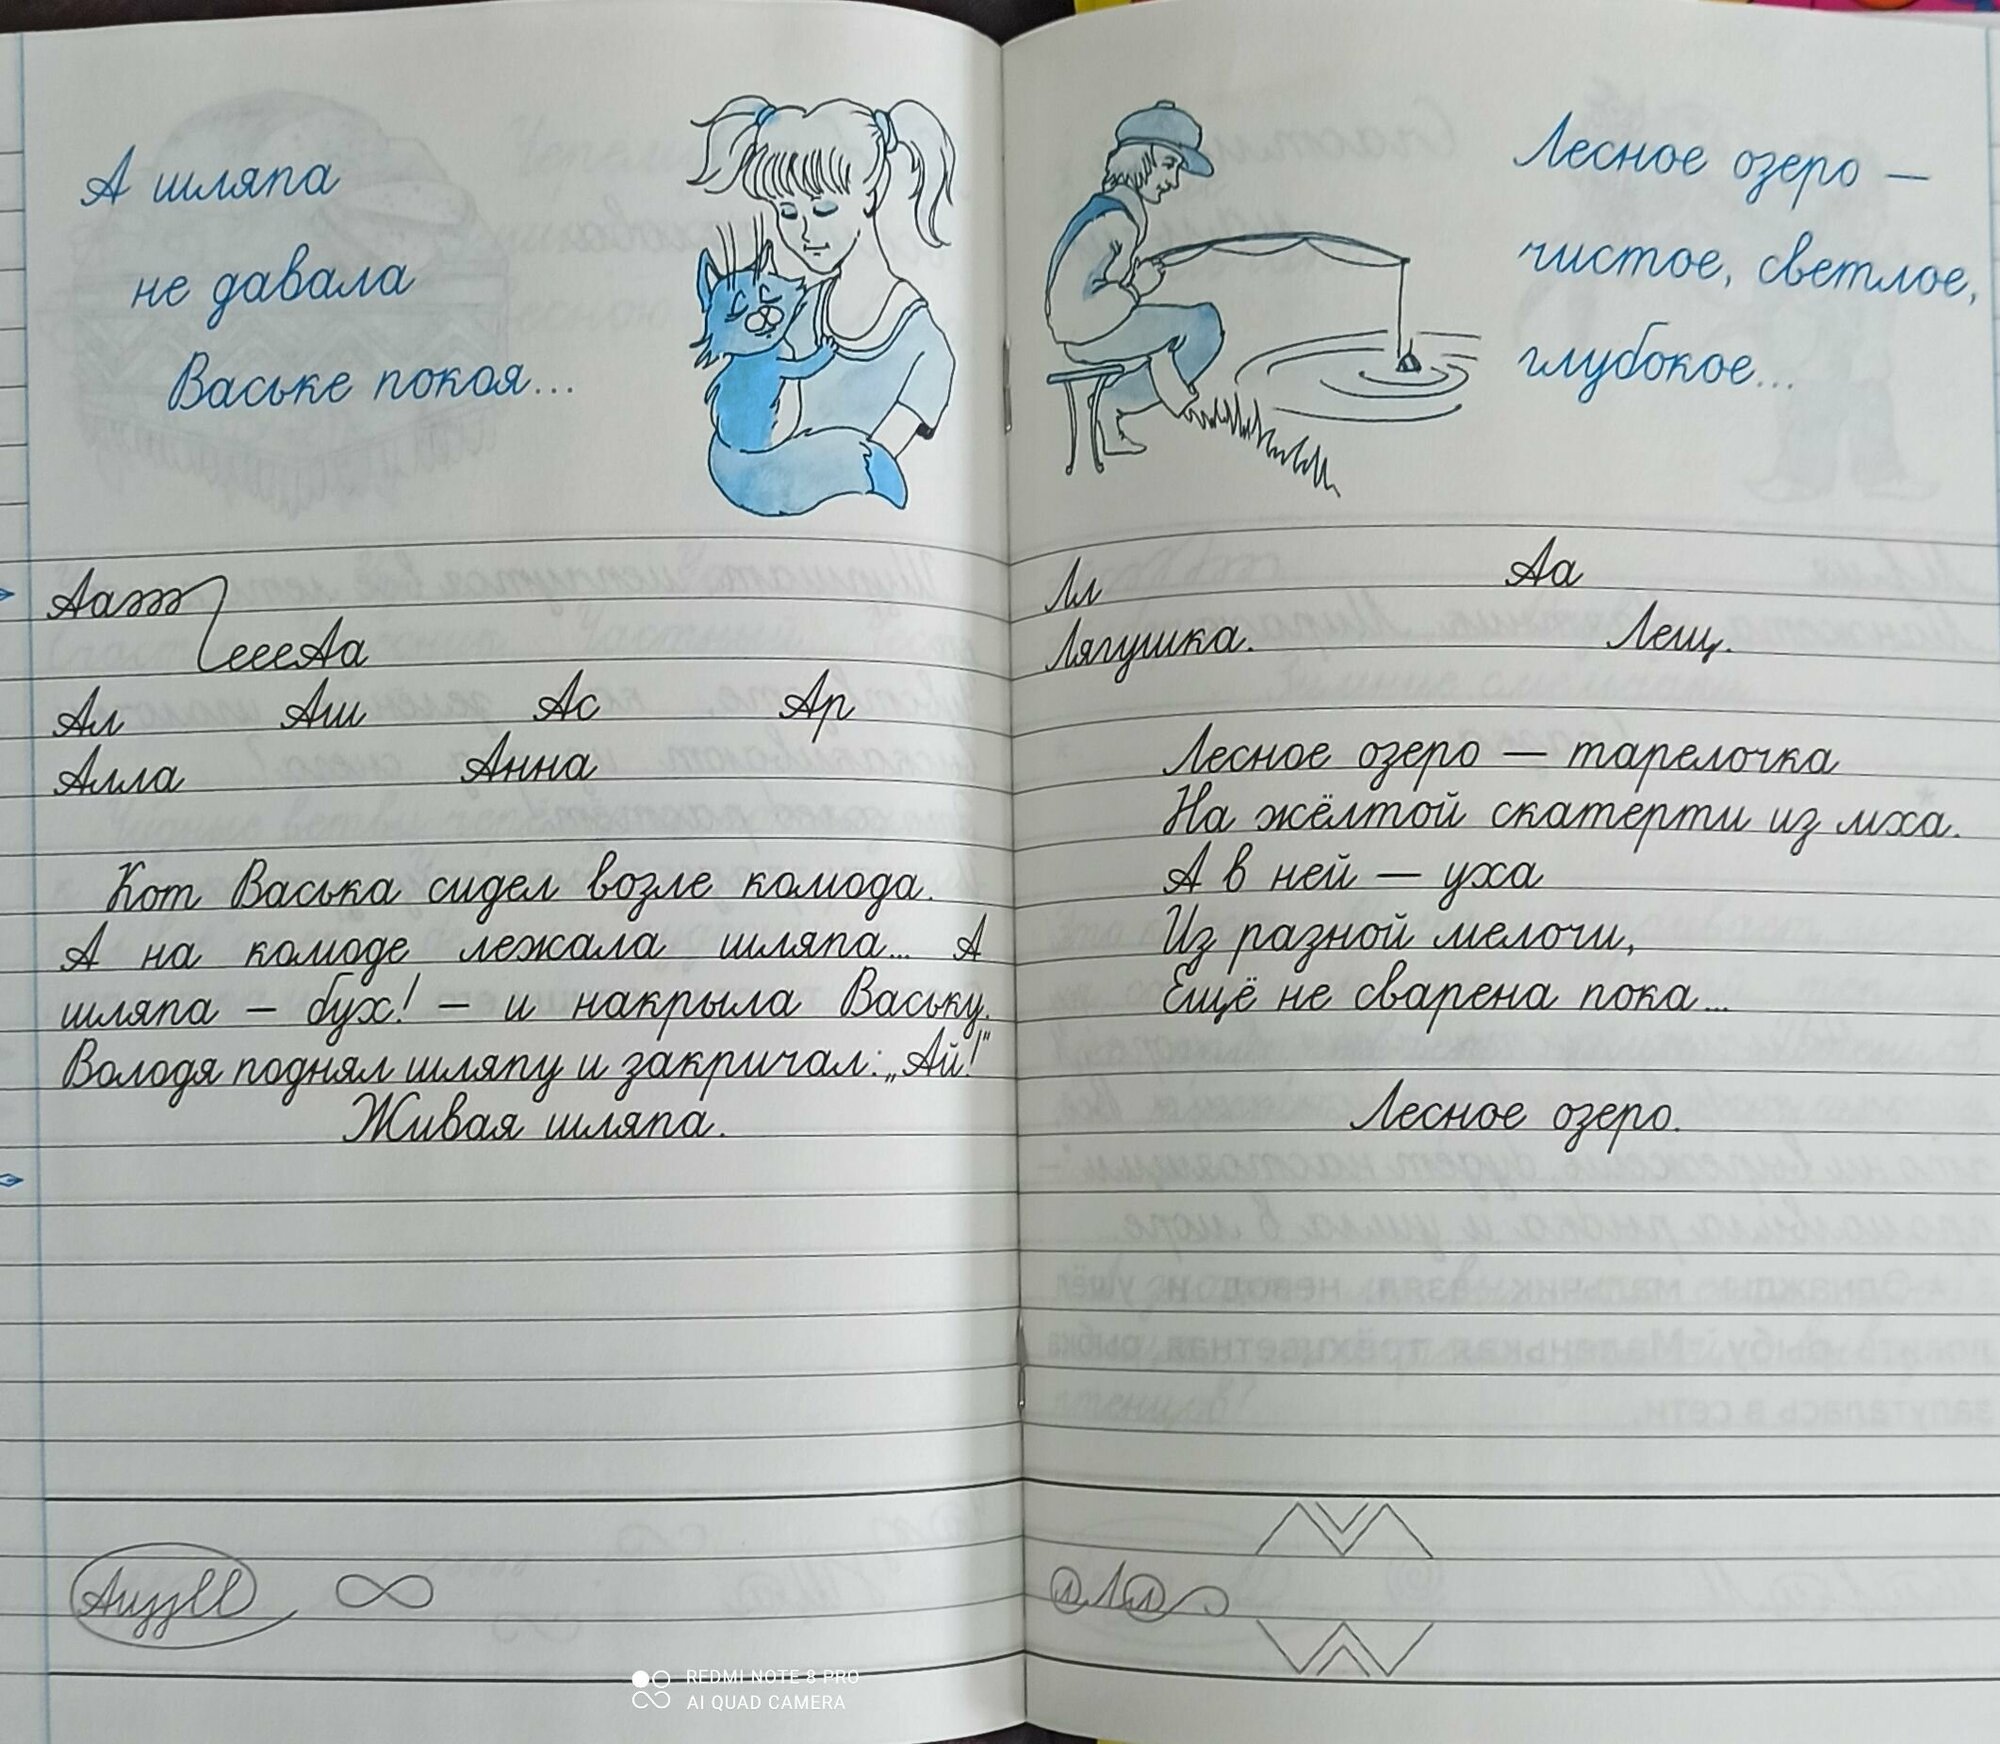 А шляпа
не давала
Ваське покоя...
Ал Аш Ас Ар
Алла Анна
Кот Васька сидел возле комода.
А на комоде лежала шляпа... А
шляпа – бух! – и накрыла Ваську.
Володя поднял шляпу и закричал: „Ай!"
Живая шляпа.
Лесное озеро —
чистое, светлое,
глубокое...
Лл Аа
Лягушка. Лещ.
Лесное озеро — тарелочка
На жёлтой скатерти из мха.
А в ней — уха
Из разной мелочи,
Ещё не сварена пока...
Лесное озеро.
REDMI NOTE 8 PRO
AI QUAD CAMERA